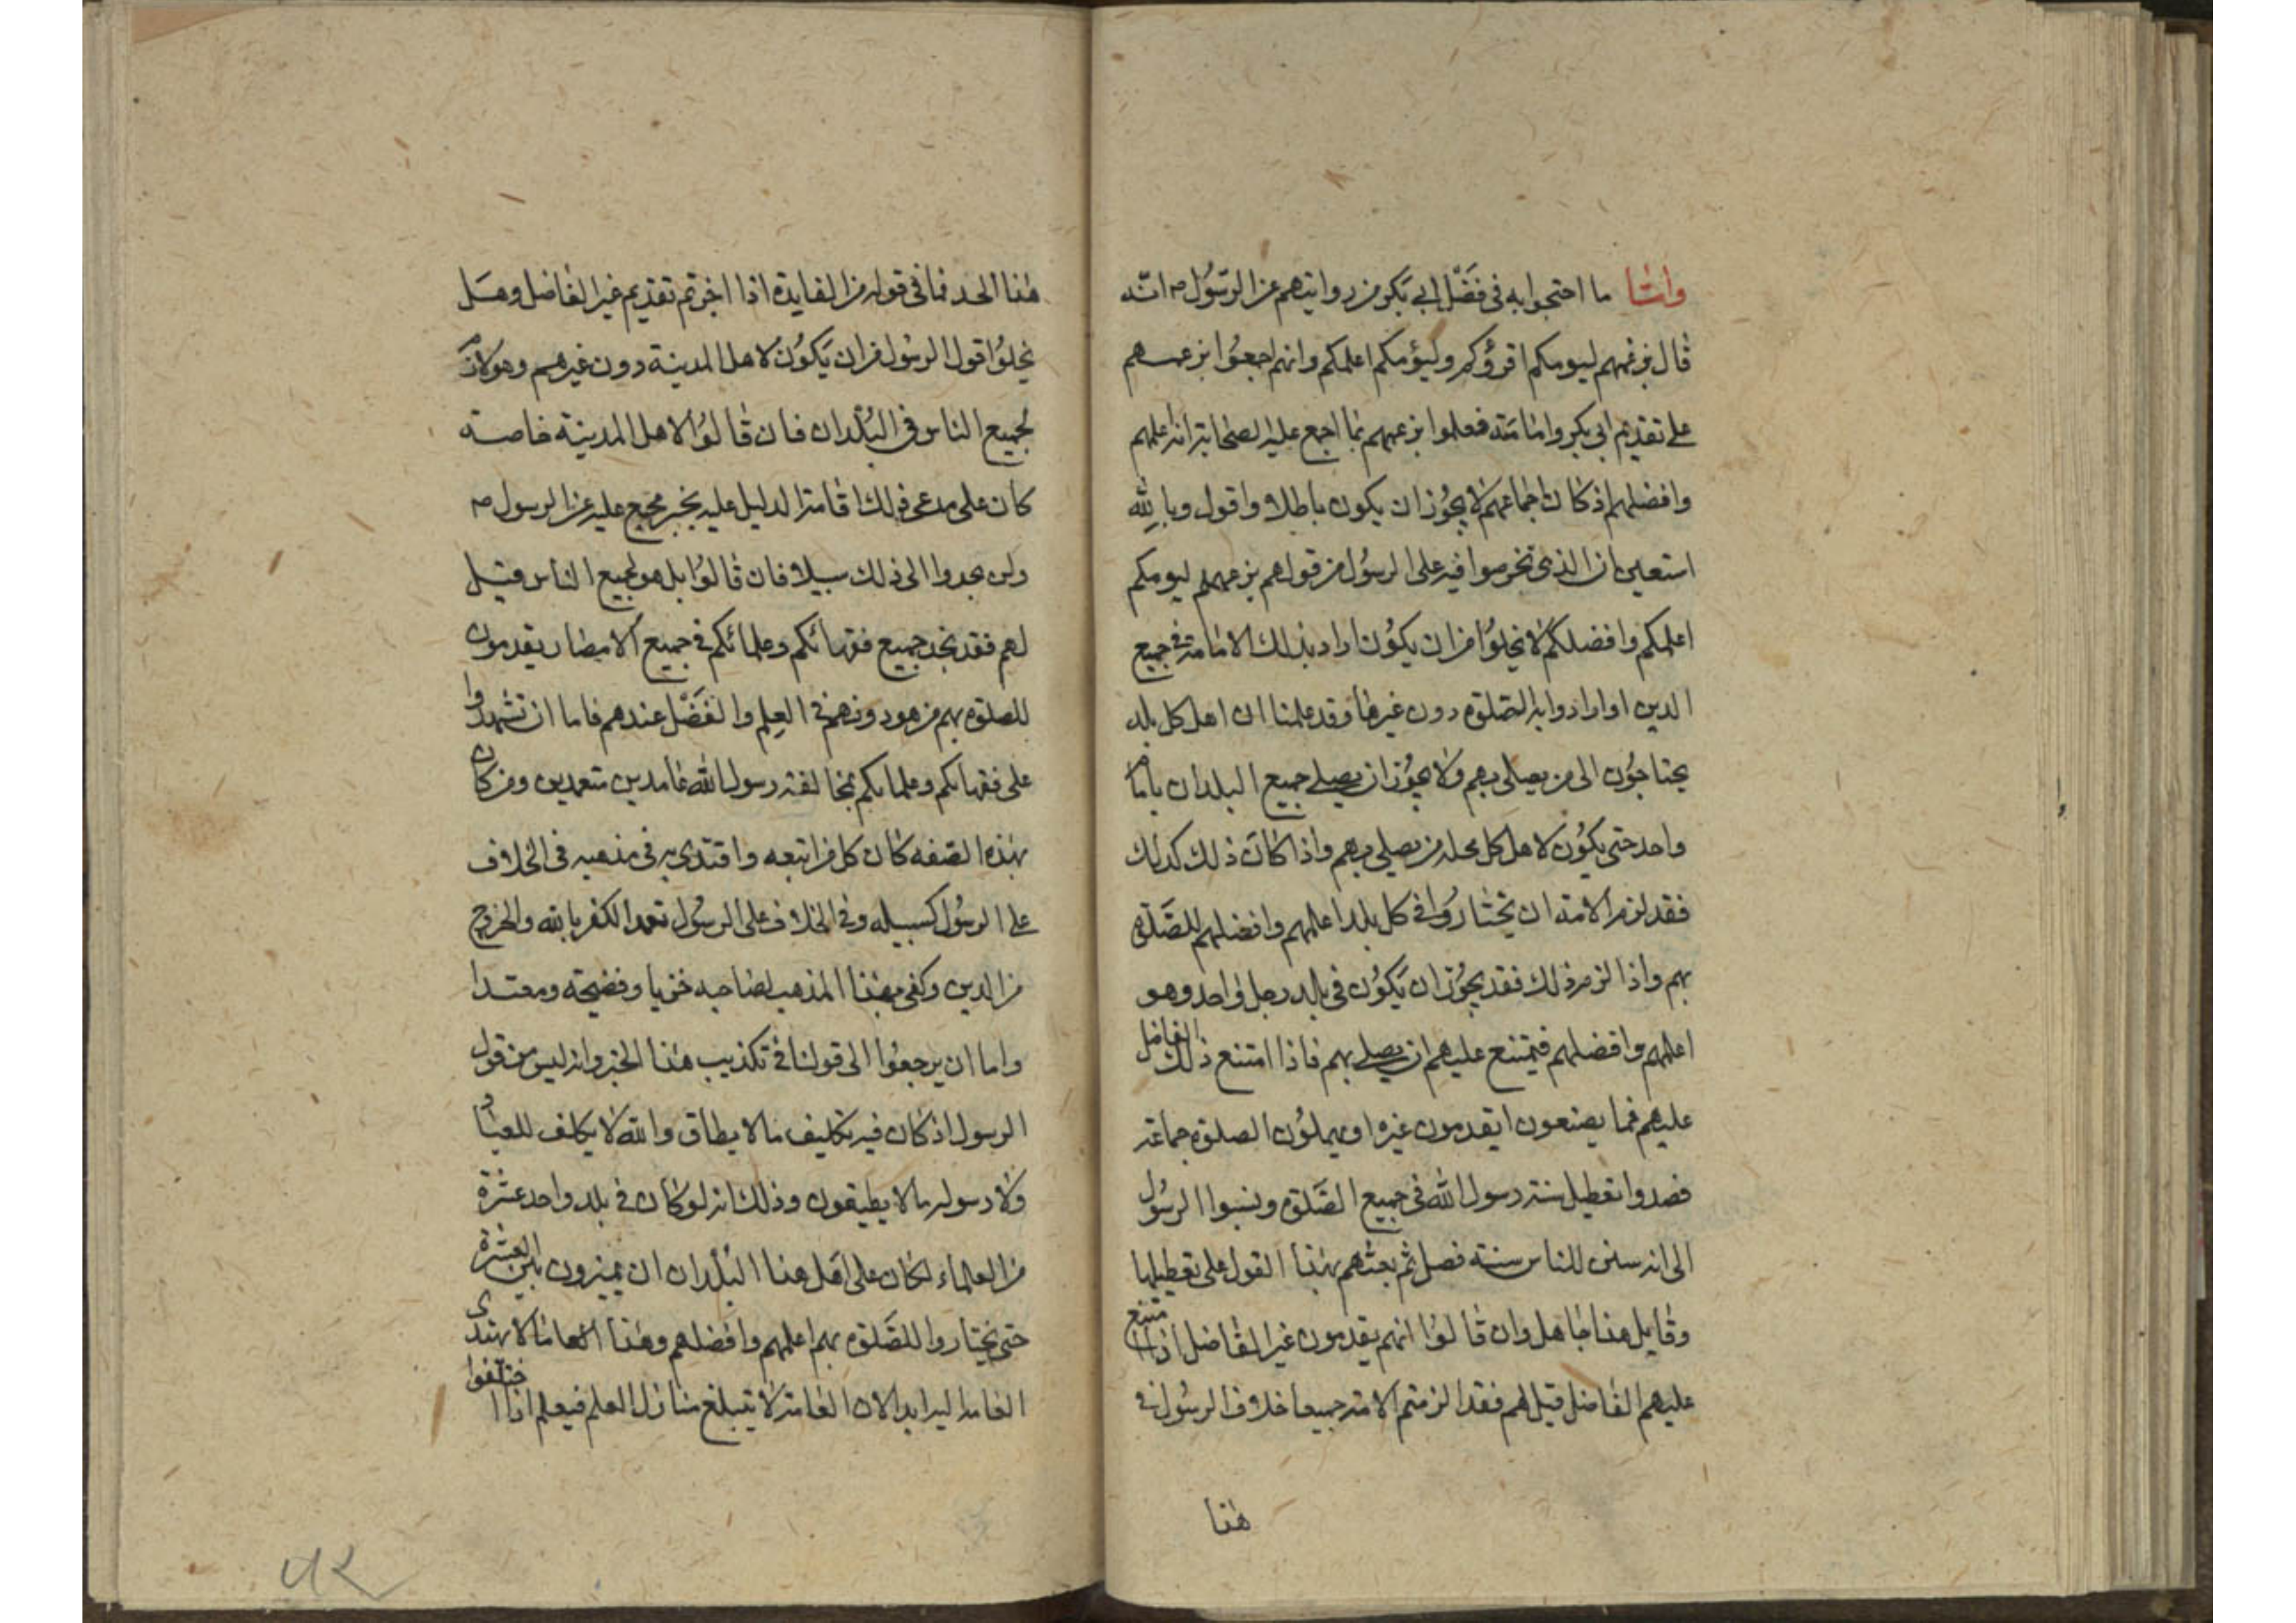 واما ما احتجوا به فى فضل ابي بكر من روايتهم عن الرسول ص انه
قال بزعمهم ليومكم اقرؤكم وليؤمكم اعلمكم وانهم اجمعوا بزعمهم
على تقديم ابى بكر وامامته فعلموا بزعمهم بما اجمع عليه الصحابة انه اعلمهم
وافضلهم اذ كان اجماعهم لا يجوز ان يكون باطلا واقول وبالله
استعين ان الذى تخرصوا فيه على الرسول من قولهم بزعمهم ليومكم
اعلمكم وافضلكم لا يخلوا من ان يكون اراد بذلك الامامة فى جميع
الدين او ارادوا به الصلوة دون غيرها وقد علمنا ان اهل كل بلد
يحتاجون الى من يصلى بهم ولا يجوز ان يصلى جميع البلدان بامام
واحد حتى يكون لاهل كل محله من يصلى بهم واذا كان ذلك كذلك
فقد لزم الامة ان يختاروا فى كل بلد اعلمهم وافضلهم للصلوة
بهم واذا لزم ذلك فقد يجوز ان يكون فى بلد رجل واحد وهو
اعلمهم وافضلهم فيمتنع عليهم ان يصلى بهم فاذا امتنع ذلك الفاضل
عليهم فما يصنعون ايقدمون غيره او يهملون الصلوة جماعة
فصدوا تعطيل سنة رسول الله فى جميع الصلوة ونسبوا الرسول
الى انه سنن للناس سنته فصل ثم بعثهم بهذا القول على تعطيلها
وقايل هذا جاهل وان قالوا انهم يقدمون غير الفاضل اذا امتنع
عليهم الفاضل قيل لهم فقد الزمتم الامة جميعا خلاف الرسول فى
هذا
هذا الحد فما فى قوله من الفايدة اذا اخرتم تقديم غير الفاضل وهل
يخلوا قول الرسول من ان يكون لاهل المدينة دون غيرهم وهو كان
لجميع الناس فى البلدان فان قالوا لاهل المدينة خاصة
كان على مدعى ذلك اقامة الدليل عليه بخبر مجمع عليه عن الرسول ص
ولن يجدوا الى ذلك سبيلا فان قالوا بل هو لجميع الناس قيل
لهم فقد نجد جميع فقهائكم وعلمائكم فى جميع الامصار يقدمون
للصلوة بهم من هو دونهم فى العلم والفضل عندهم فاما ان تشهدوا
على فقهائكم وعلمائكم بمخالفة رسول الله عامدين متعمدين ومن كان
بهذه الصفه كان كل من اتبعه واقتدى به فى مذهبه فى الخلاف
على الرسول كسبيله وفى الخلاف على الرسول تعمدا الكفر بالله والخروج
من الدين وكفى بهذا المذهب لصاحبه خزيا وفضيحة ومعتدا
واما ان يرجعوا الى قولنا فى تكذيب هذا الخبر وانه ليس من قول
الرسول اذ كان فيه تكليف ما لا يطاق والله لا يكلف للعباد
ولا رسوله ما لا يطيقون وذلك انه لو كان فى بلد واحد عشرة
من العلماء لكان على اهل هذا البلدان ان يميزون بين العشرة
حتى يختاروا للصلوة بهم اعلمهم وافضلهم وهذا العاما لا يهتدى
العامة اليه ابدا لان العامة لا تبلغ منازل العلم فيعلم اذا اختلفوا
۵۲